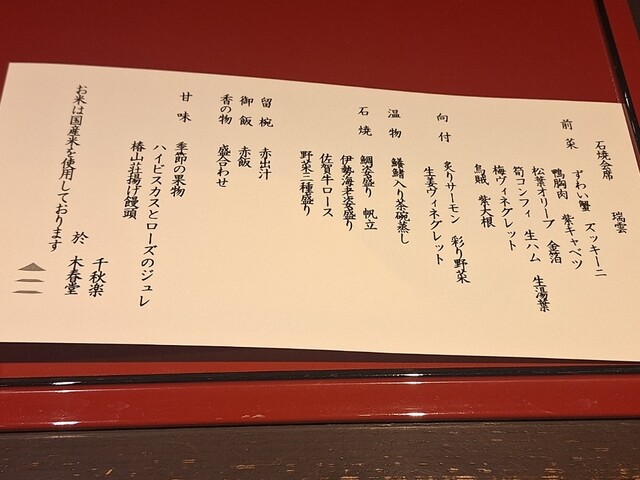 石焼会席 瑞雲
前菜
ずわい蟹 ズッキーニ
鴨胸肉 紫キャベツ
松葉オリーブ 金箔
筍コンフィ 生ハム 生湯葉
梅ヴィネグレット
烏賊 紫大根
向付
炙りサーモン 彩り野菜
生姜ヴィネグレット
温物
鱶鰭入り茶碗蒸し
石焼
鯛姿盛り 帆立
伊勢海老姿盛り
佐賀牛ロース
野菜三種盛り
留椀 赤出汁
御飯 赤飯
香の物 盛合わせ
甘味
季節の果物
ハイビスカスとローズのジュレ
椿山荘揚げ饅頭
千秋楽
於 木春堂
お米は国産米を使用しております